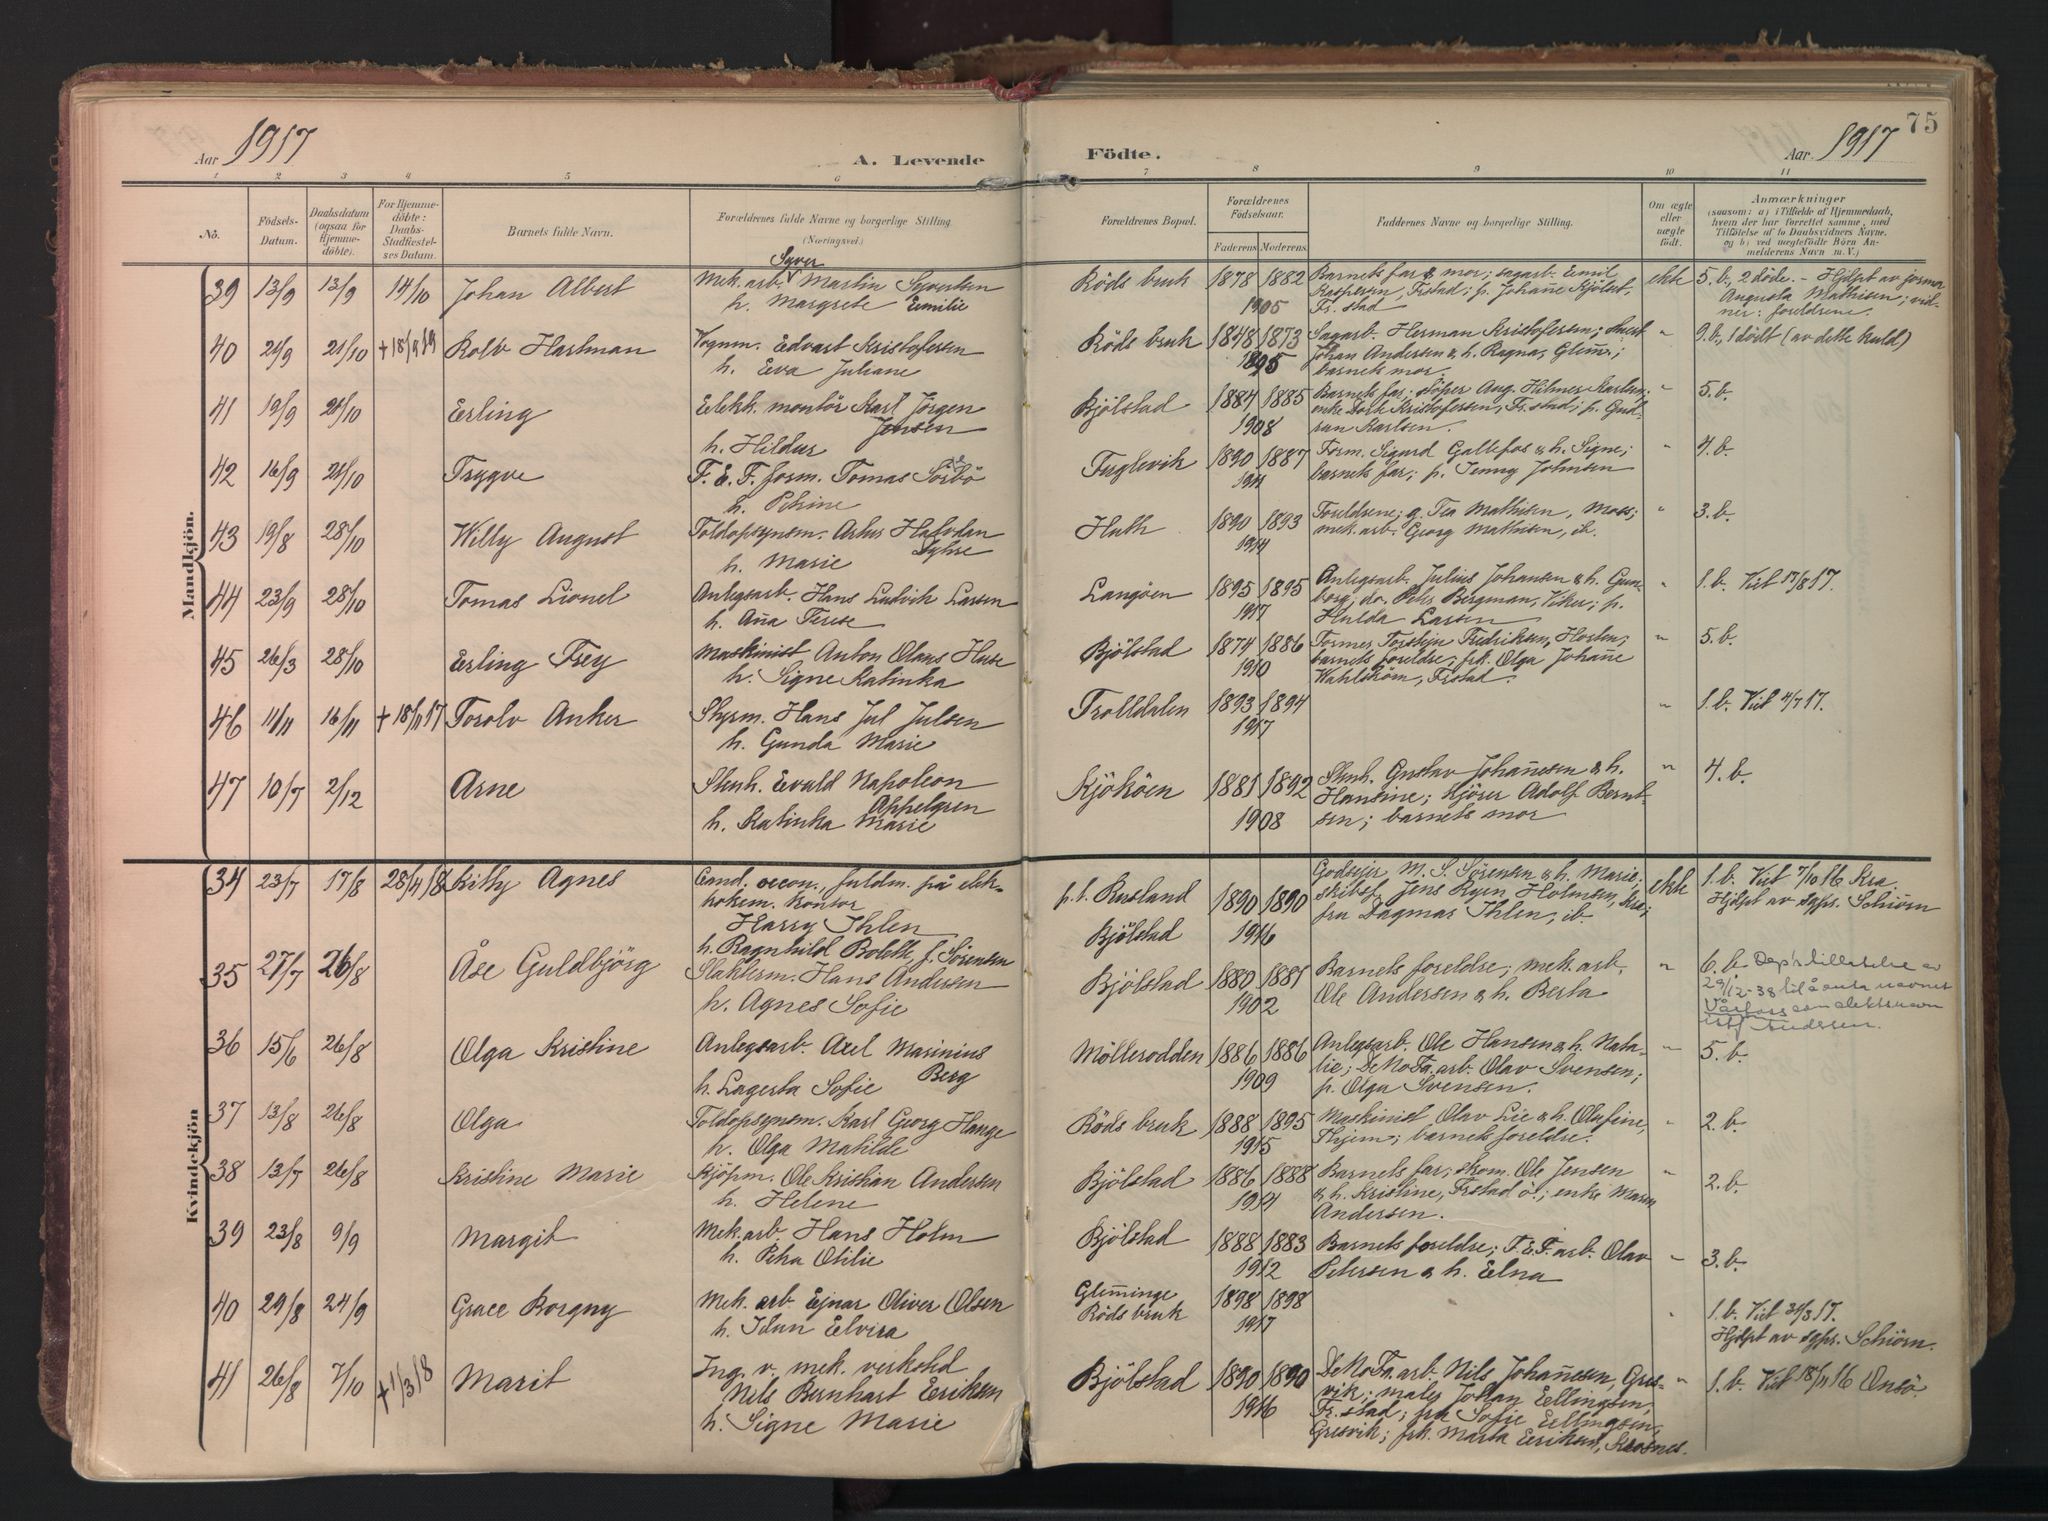 75
Aar 1917
A. Levende Födte.
Aar 1917
1 2 3 4 5 6 7 8 9 10 11
No.
Födsels-
Datum.
Daabsdatum
(ogsaa for
Hjemme-
döbte).
For Hjemme-
döbte:
Daabs-
Stadfæstel-
ses Datum.
Barnets fulde Navn.
Forældrenes fulde Navne og borgerlige Stilling
(Næringsvei).
Forældrenes Bopæl.
Forældrenes
Födselsaar.
Faderens. Moderens.
Faddernes Navne og borgerlige Stilling.
Om ægte
eller
uægte
födt.
Anmærkninger
(saasom: a) i Tilfælde af Hjemmedaab,
hvem der har forrettet samme, med
Tilföielse af to Daabsvidners Navne,
og b) ved uægtefödte Börn An-
melderens Navn m. V.)
Mandkjön.
39 13/9 13/9 14/10 Johan Albert
Syver
Mek. arb. Martin Syvertsen
h. Margrete Emilie
Röds bruk 1878 1882
1905
Barnets far & mor; sagarb. Emil
Kaspersen, Frstad; p. Johanne Kjölset,
Fr. stad
ekte
5. b., 2 döde. – Hjdpt av jormo
Augusta Mathisen; vid-
ner: foreldrene.
40 21/9 21/10 + 18/9 19 Rolv Hartman
Vognm. Edvart Kristofersen
h. Eva Juliane
Röds bruk 1848 1873
1895
Sagarb. Herman Kristofersen; Smed
Johan Andersen & h. Ragna, Glemm.;
barnets mor.
"
9. b., 1 dödt (av dette kuld)
41 19/9 21/10 Erling
Elekt. montör Karl Jörgen
Jensen
h. Hildur
Bjölstad 1884 1885
1908
Barnets far; støper Aug. Hilmer Karlsen;
enke Dort. Kristofersen, Fr.stad; p. Gud-
run Karlsen.
"
5. b.
42 16/9 21/10 Trygve
F. E. F. form. Tomas Sörbö
h. Petrine
Fuglevik 1890 1887
1911
Form. Sigurd Gallefos & h. Signe;
barnets far; p. Jenny Johnsen
"
4. b.
43 19/8 28/10 Willy August
Toldopsynsm. Artur Halvdan
Syhre
h. Marie
Huth 1890 1893
1914
Foreldrene; g. Tea Mathisen, Moss;
mek. arb. Georg Mathisen, ib.
"
3. b.
44 23/9 28/10 Tomas Lionel
Anlegsarb. Hans Ludvik Larsen
h. Anna Terese
Langöen 1895 1895
1917
Anlegsarb. Julius Johansen & h. Gun-
borg, do. Petr. Bergman, Viker; p.
Hulda Larsen
"
1. b. Viet 17/8 17.
45 26/3 28/10 Erling Frey
Maskinist Anton Olaus Huse
h. Signe Katinka
Bjölstad 1874 1886
1910
Former Torstejn Fredriksen, Horten;
barnets foreldre; frk. Olga Johanne
Wahlström, Frstad.
"
5. b.
46 11/11 16/11 + 18/11 17 Torolv Anker
Styrm. Hans Jul Julsen
h. Gunda Marie
Trolldalen 1893 1894
1917
"
1. b. Viet 4/7 17.
47 10/7 2/12 Arne
Stenh. Evald Napoleon
Appelgren
h. Katinka Marie
Kjököen 1881 1892
1908
Stenh. Gustav Johannesen & h.
Hansine; kjörer Adolf Bernt-
sen; barnets mor
"
4. b.
Kvindekjön
34 23/7 17/8 28/4 18 Kitty Agnes
Cand. oecon., fuldm. på elek-
trokem. kontor
Harry Ihlen
h. Ragnhild Bolette, f. Sörensen
p. t. Rusland
Bjölstad
1890 1890
1916
Godsejer M. S. Sörensen & h. Marie;
skibsf. Jens Ryen Holmsen, Kra.;
fru Dagmar Ihlen, ib.
ekte
1. b. Viet 7/10 16 Kra.
Hjdpt av sgpr. Schiörn
35 27/7 26/8 Åse Guldbjörg
Slakterm. Hans Andersen
h. Agnes Sofie
Bjölstad 1880 1881
1902
Barnets foreldre; mek. arb.
Ole Andersen & h. Berta
"
6. b. Dep's tillatelse av
29/12-38 til å anta navnet
som slektsnavn
istf Andersen.
36 15/6 26/8 Olga Kristine
Anlegsarb. Axel Marinius
Berg
h. Lagerta Sofie
Mölleroddden 1886 1886
1909
Anlegsarb. Ole Hansen & h. Nata-
lie; DeNoFa. arb. Olav Svensen;
p. Olga Svensen.
"
5. b.
37 13/8 26/8 Olga
Toldopsynsm. Karl Georg Hauge
h. Olga Matilde
Röds bruk 1888 1895
1915
Maskinist Olav Lie & h. Olufine,
Thjem; barnets foreldre.
"
2. b.
38 13/7 26/8 Kristine Marie
Kjöpm. Ole Kristian Andersen
h. Helene
Bjölstad 1886 1888
1914
Barnets far; skom. Ole Jensen
& h. Kristine, Frstad ö.; enke Maren
Andersen.
"
2. b.
39 23/8 9/9 Margit
Mek. arb. Hans Holm
h. Petra Otilie
Bjölstad 1888 1883
1912
Barnets foreldre; F. E. F. arb. Olav
Petersen & h. Elna
"
3. b.
40 29/8 24/9 Grace Borgny
Mek. arb. Ejnar Oliver Olsen
h. Idun Elvira
Glemminge
Röds bruk
1898 1898
1917
"
1. b. Viet 31/3 17.
Hjdpt av sgpr. Schiörn.
41 26/8 7/10 + 1/3 18 Marit
Ing. v. mek. verksted
Nils Bernhart Eriksen
h. Signe Marie
Bjölstad 1890 1890
1916
DeNoFa. arb. Nils Johannesen, Gres-
vik; maler Johan Ellingsen,
Fr. stad; fru Sofie Ellingsen,
Gresvik; frk. Marta Eriksen, Kroknes.
"
1. b. Viet 18/11 16 Onsö.